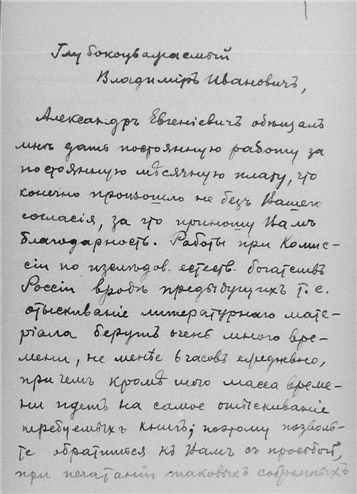 Глубокоуважаемый
Владиміръ Ивановичъ,
Александръ Евгеніевичъ обѣщалъ
мнѣ дать постоянную работу за
постоянную мѣсячную плату, что
конечно произошло не безъ Вашего
согласія, за что приношу Вамъ
благодарность. Работы при Комис-
сіи по изслѣдов. естеств. богатствъ
Россіи вродѣ предыдущихъ т.е.
отыскиваніе литературнаго мате-
ріала берутъ очень много вре-
мени, не менѣе 6 часовъ ежедневно,
при чемъ кромѣ того масса време-
ни идетъ на самое отыскиваніе
требуемыхъ книгъ; поэтому позволь-
те обратиться къ Вамъ съ просьбой,
при печатаніи таковыхъ собранныхъ